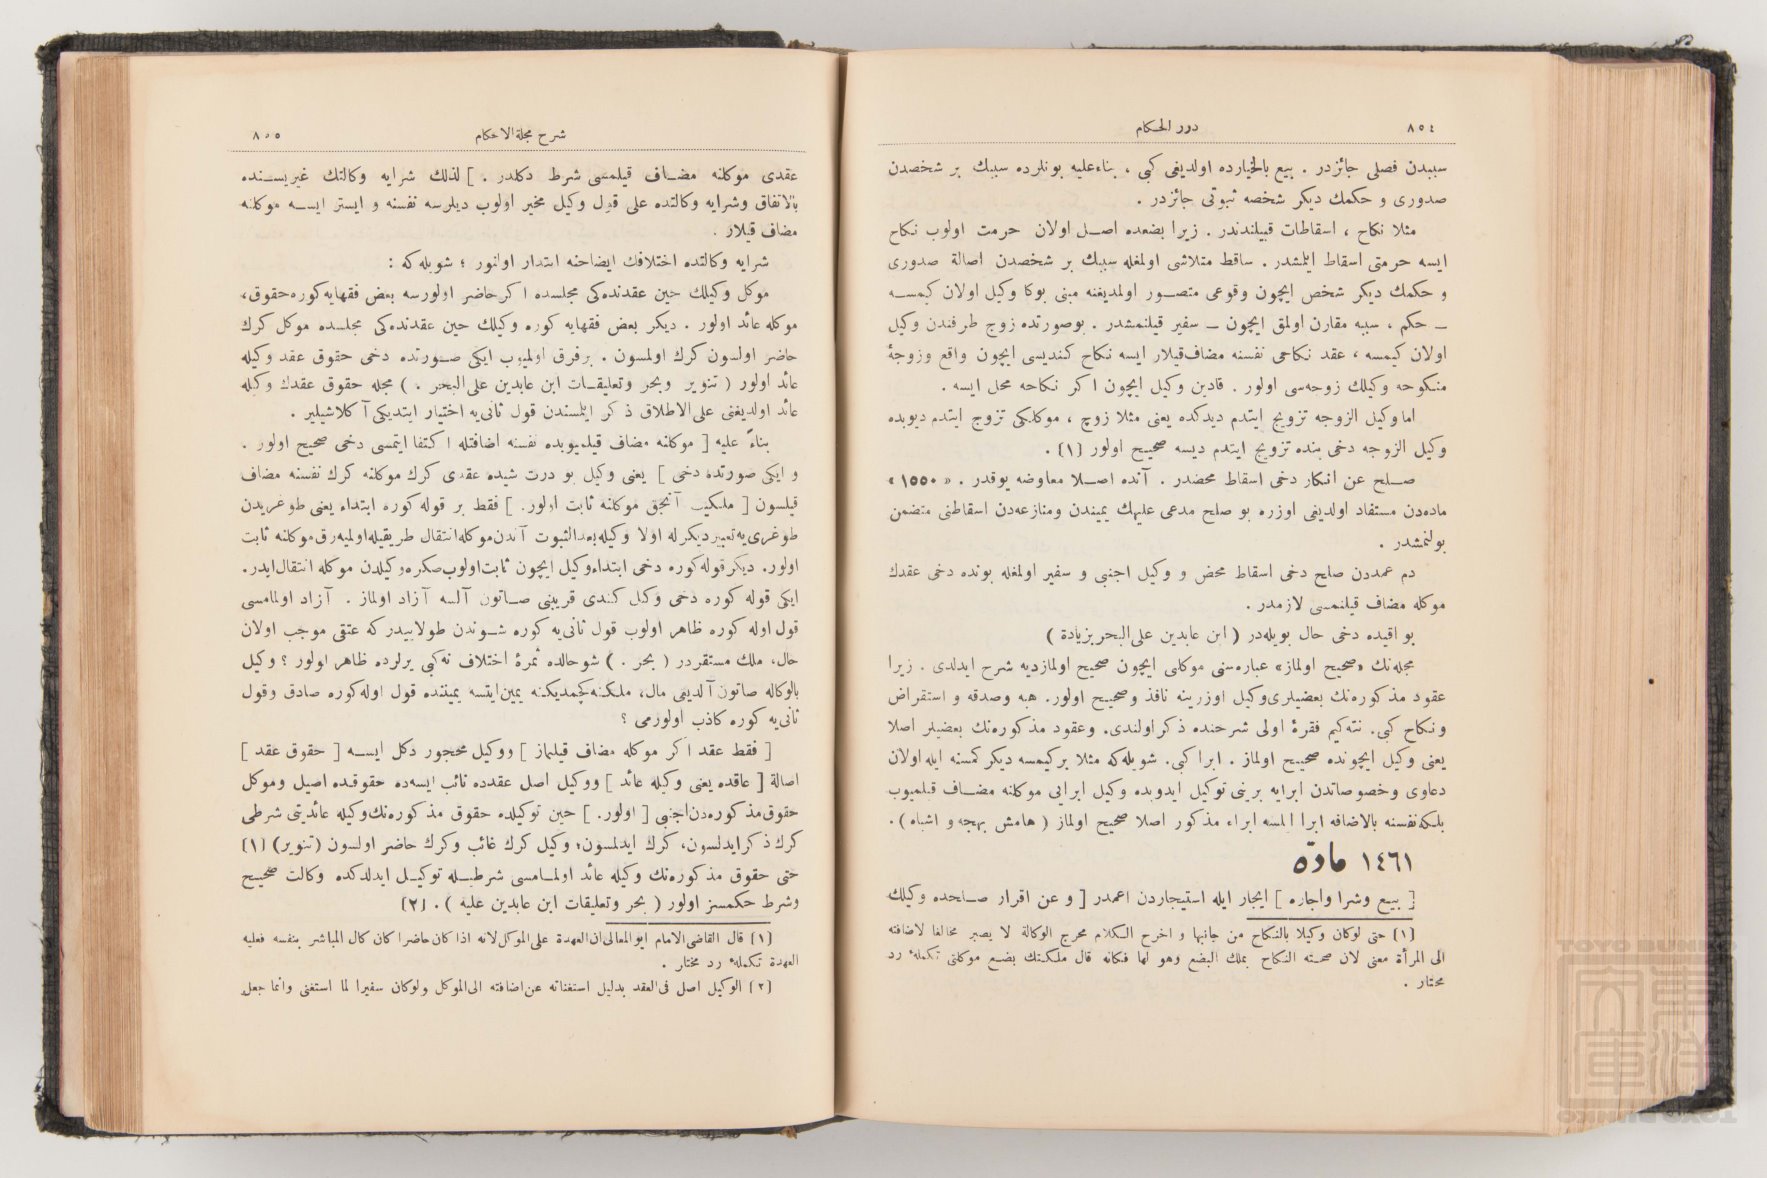 ٨٥٤
درر الحكام
سببدن فصلى جائزدر . بيع بالخيارده اولديغى كبى ، بناءعليه بونلرده سببك بر شخصدن
صدورى و حكمك ديكر شخصه ثبوتى جائزدر .
مثلا نكاح ، اسقاطات قبيلندندر . زيرا بضعده اصل اولان حرمت اولوب نكاح
ايسه حرمتى اسقاط ايتمشدر . ساقط متلاشى اولمغله سببك بر شخصدن اصالة صدورى
و حكمك ديكر شخص ايچون وقوعى متصور اولمديغنه مبنى بوكا وكيل اولان كيمسه
ــ حكم ، سببه مقارن اولمق ايچون ــ سفير قيلنمشدر . بوصورتده زوج طرفندن وكيل
اولان كيمسه ، عقد نكاحى نفسنه مضاف قيلار ايسه نكاح كنديسى ايچون واقع وزوجهٔ
منكوحه وكيلك زوجه‌سى اولور . قادين وكيل ايچون اكر نكاحه محل ايسه .
اما وكيل الزوجه تزويج ايتدم ديدكده يعنى مثلا زوج ، موكلكى تزوج ايتدم ديوبده
وكيل الزوجه دخى بنده تزويج ايتدم ديسه صحيح اولور [١] .
صلح عن انكار دخى اسقاط محضدر . آنده اصلا معاوضه يوقدر . « ١٥٥٠ »
ماده‌دن مستفاد اولديغى اوزره بو صلح مدعى عليهك يمينندن ومنازعه‌دن اسقاطنى متضمن
بولنمشدر .
دم عمددن صلح دخى اسقاط محض و وكيل اجنبى و سفير اولمغله بونده دخى عقدك
موكله مضاف قيلنمسى لازمدر .
بو اقيده دخى حال بويله‌در ( ابن عابدين على البحر بزيادة )
مجله‌نك «صحيح اولماز» عباره‌سنى موكلى ايچون صحيح اولمازديه شرح ايدلدى . زيرا
عقود مذكوره‌نك بعضيلرى وكيل اوزرينه نافذ وصحيح اولور. هبه وصدقه و استقراض
ونكاح كبى. نته‌كيم فقرهٔ اولى شرحنده ذكر اولندى. وعقود مذكوره‌نك بعضيلر اصلا
يعنى وكيل ايچونده صحيح اولماز . ابرا كبى. شويله‌كه مثلا بركيمسه ديكر كمسنه ايله اولان
دعاوى وخصوصاتدن ابرايه برينى توكيل ايدوبده وكيل ابرايى موكلنه مضاف قيلميوب
بلكه نفسنه بالاضافه ابرا ايلسه ابراء مذكور اصلا صحيح اولماز ( هامش بهجه و اشباه ) .
١٤٦١ مادّه
[ بيع وشرا واجاره ] ايجار ايله استيجاردن اعمدر [ و عن اقرار صلحده وكيلك
[١] حتى لوكان وكيلا بالنكاح من جانبها و اخرج الكلام مخرج الوكالة لا يصير مخالفا لاضافته
الى المرأة معنى لان صحته النكاح بملك البضع وهو لها فكانه قال ملكتك بضع موكلتى تكملهٔ رد
محتار .
شرح مجلة الاحكام
٨٥٥
عقدى موكلنه مضاف قيلمسى شرط دكلدر . ] لذلك شرايه وكالتك غيريسنده
بالاتفاق وشرايه وكالتده على قول وكيل مخير اولوب ديلرسه نفسنه و ايستر ايسه موكلنه
مضاف قيلار .
شرايه وكالتده اختلافك ايضاحنه ابتدار اولنور ؛ شويله‌كه :
موكل وكيلك حين عقدنده‌كى مجلسده اكر حاضر اولورسه بعض فقهايه كوره حقوق،
موكله عائد اولور . ديكر بعض فقهايه كوره وكيلك حين عقدنده‌كى مجلسده موكل كرك
حاضر اولسون كرك اولمسون . برفرق اولميوب ايكى صورتده دخى حقوق عقد وكيله
عائد اولور ( تنوير وبحر وتعليقات ابن عابدين على البحر . ) مجله حقوق عقدك وكيله
عائد اولديغنى على الاطلاق ذكر ايتمسندن قول ثانى‌يه اختيار ايتديكى آكلاشيلير .
بناءً عليه [ موكلنه مضاف قيلميوبده نفسنه اضافتله اكتفا ايتمسى دخى صحيح اولور .
و ايكى صورتده دخى ] يعنى وكيل بو درت شيده عقدى كرك موكلنه كرك نفسنه مضاف
قيلسون [ ملكيت آنجق موكلنه ثابت اولور. ] فقط بر قوله كوره ابتداء يعنى طوغريدن
طوغرى‌يه تعبير ديكرله اولا وكيله بعدالثبوت آندن موكله انتقال طريقيله اولميه‌رق موكلنه ثابت
اولور. ديكر قوله كوره دخى ابتداء وكيل ايچون ثابت اولوب صكره وكيلدن موكله انتقال ايدر.
ايكى قوله كوره دخى وكيل كندى قريبنى صاتون آلسه آزاد اولماز . آزاد اولمامسى
قول اوله كوره ظاهر اولوب قول ثانى‌يه كوره شوندن طولاييدر كه عتقى موجب اولان
حال، ملك مستقردر ( بحر . ) شو حالده ثمرهٔ اختلاف نه كبى يرلرده ظاهر اولور ؟ وكيل
بالوكاله صاتون آلديغى مال، ملكنه كچمديكنه يمين ايتسه يميننده قول اوله كوره صادق وقول
ثانى‌يه كوره كاذب اولورمى ؟
[ فقط عقد اكر موكله مضاف قيلنماز ] ووكيل محجور دكل ايسه [ حقوق عقد ]
اصالة [ عاقده يعنى وكيله عائد ] ووكيل اصل عقدده نائب ايسه‌ده حقوقده اصيل وموكل
حقوق مذكوره‌دن اجنبى [ اولور. ] حين توكيلده حقوق مذكوره‌نك وكيله عائديتى شرطى
كرك ذكر ايدلسون، كرك ايدلمسون؛ وكيل كرك غائب وكرك حاضر اولسون (تنوير) [١]
حتى حقوق مذكوره‌نك وكيله عائد اولمامسى شرطيله توكيل ايدلدكده وكالت صحيح
وشرط حكمسز اولور ( بحر وتعليقات ابن عابدين عليه ) . [٢]
[١] قال القاضى الامام ابوالمعالى ان العهدة على الموكل لانه اذا كان حاضرا كان كال المباشر بنفسه فعليه
العهدة تكملهٔ رد مختار .
[٢] الوكيل اصل فى العقد بدليل استغنائه عن اضافته الى الموكل ولوكان سفيرا لما استغنى وانما جعل